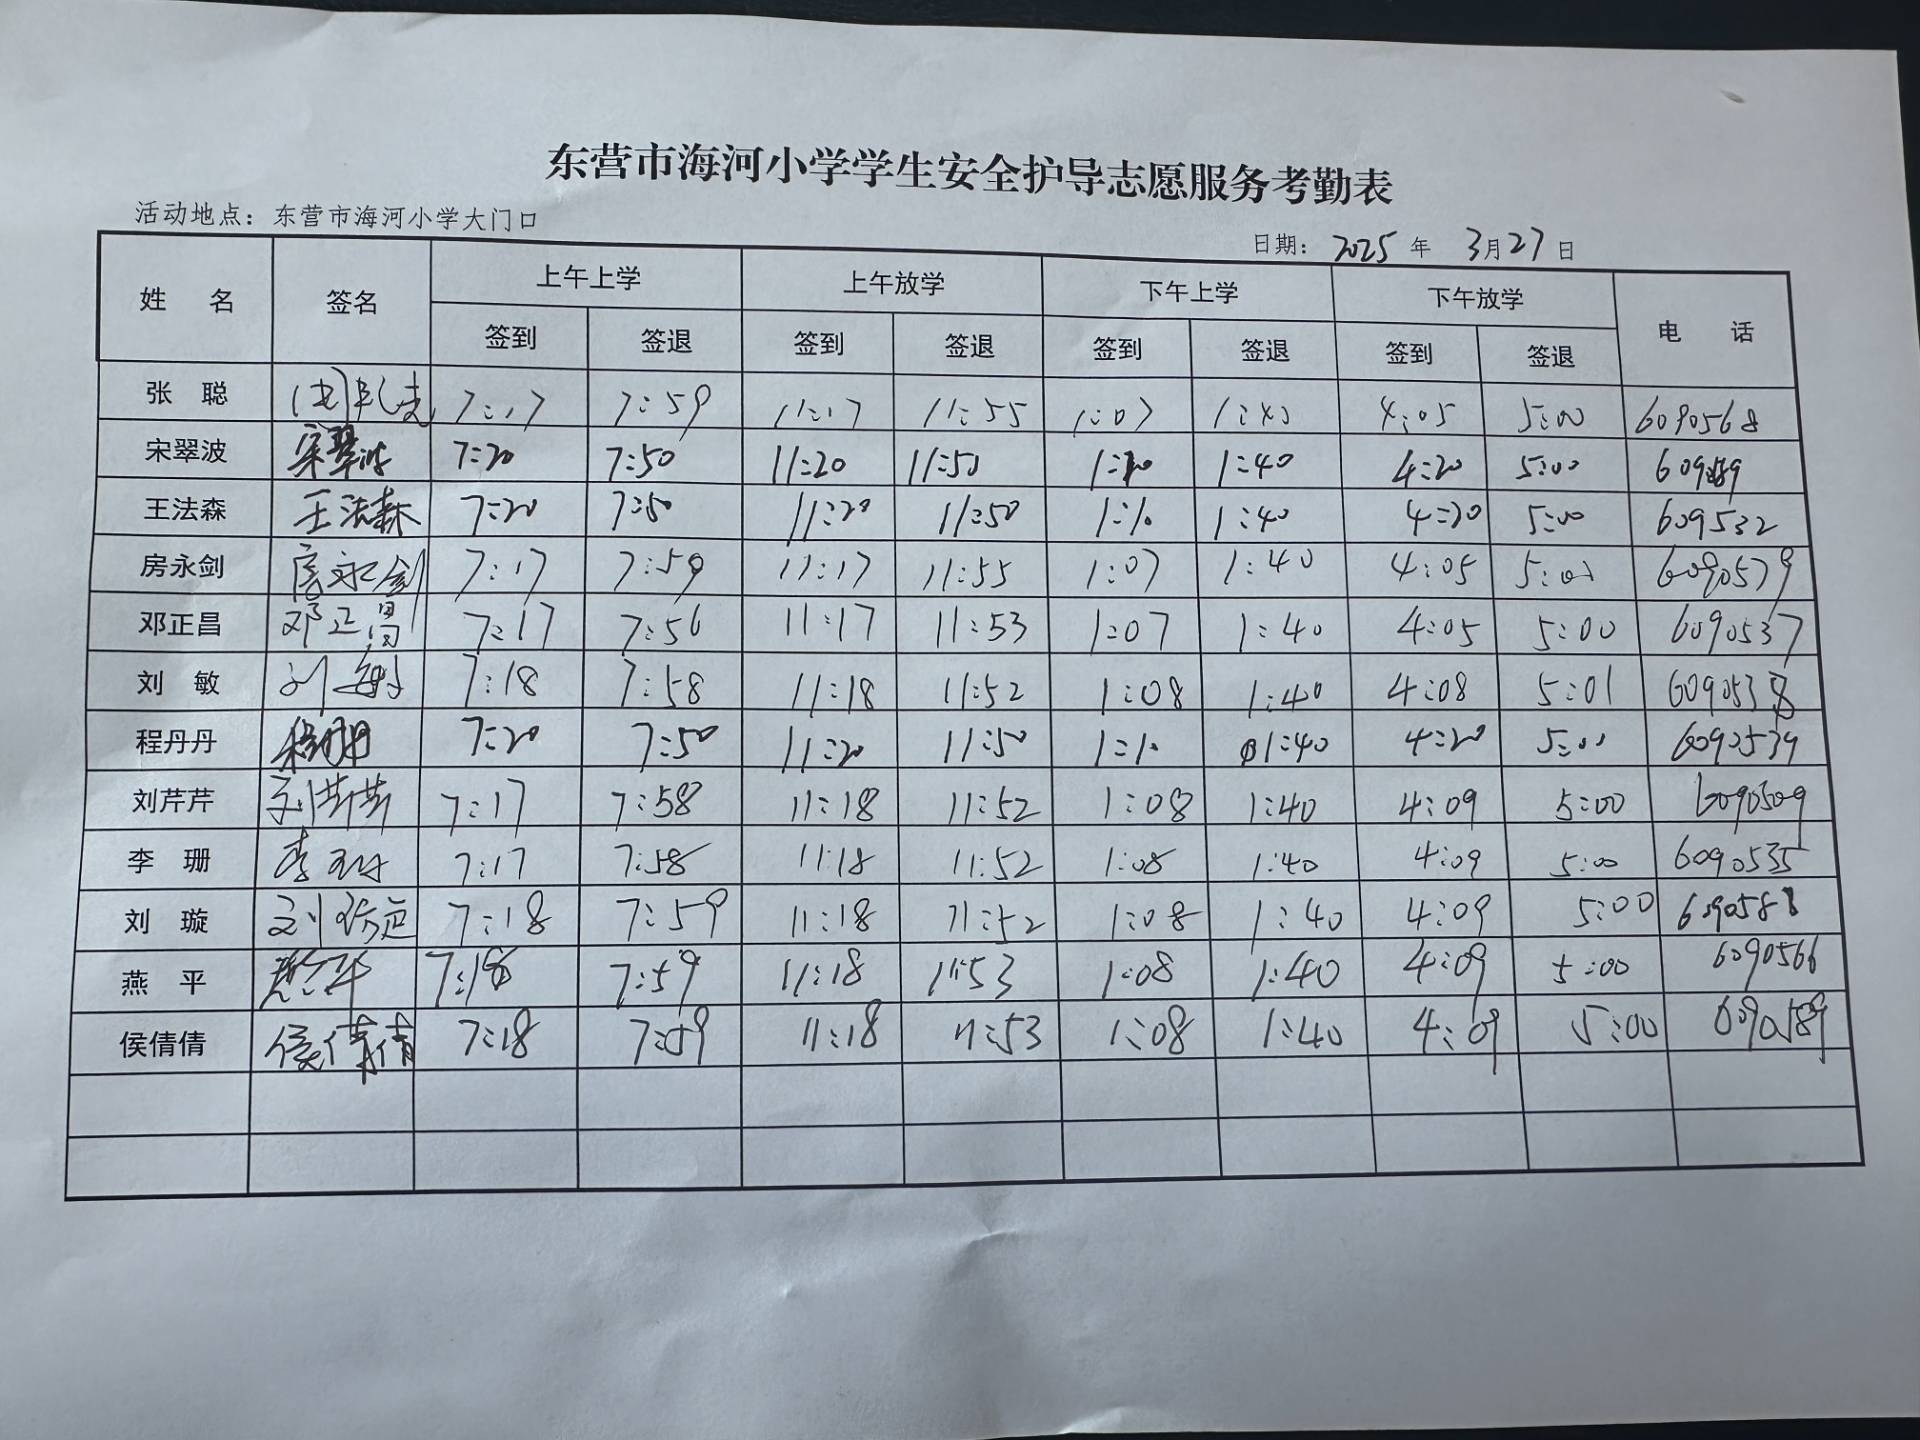 东营市海河小学学生安全护导志愿服务考勤表
活动地点：东营市海河小学大门口
日期： 2025 年 3月27日
姓 名 签名 上午上学 上午放学 下午上学 下午放学 电 话
签到 签退 签到 签退 签到 签退 签到 签退
张 聪 7:17 7:59 11:17 11:55 1:07 1:40 4:05 5:00 6090568
宋翠波 宋翠波 7:20 7:50 11:20 11:50 1:40 4:20 5:00
王法森 王法森 7:20 7:50 11:20 11:50 1:10 1:40 4:20 5:00 609532
房永剑 房永剑 7:17 7:59 11:17 11:55 1:07 1:40 4:05 5:00 6090579
邓正昌 邓正昌 7:17 7:56 11:17 11:53 1:07 1:40 4:05 5:00 6090537
刘 敏 刘敏 7:18 7:58 11:18 11:52 1:08 1:40 4:08 5:01 6090538
程丹丹 程丹丹 7:20 7:50 11:20 11:50 1:10 1:40 4:20 5:00 6090539
刘芹芹 刘芹芹 7:17 7:58 11:18 11:52 1:08 1:40 4:09 5:00 6090509
李 珊 李珊 7:17 7:58 11:18 11:52 1:08 1:40 4:09 5:00 6090535
刘 璇 刘璇 7:18 7:59 11:18 11:52 1:08 1:40 4:09 5:00 6090588
燕 平 燕平 7:18 7:59 11:18 11:53 1:08 1:40 4:09 5:00 6090566
侯倩倩 侯倩倩 7:18 7:59 11:18 11:53 1:08 1:40 4:09 5:00 6090589